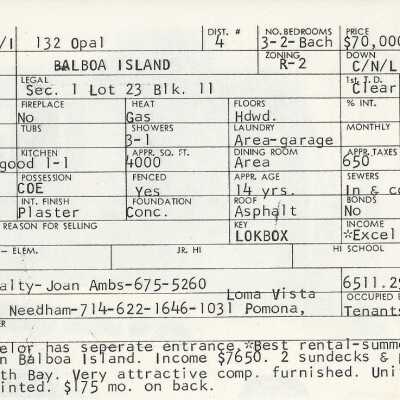 /I 132 Opal DIST. # 4 NO. BEDROOMS 3-2-Bach PRICE $70,000
BALBOA ISLAND ZONING R-2 DOWN C/N/L
LEGAL Sec. 1 Lot 23 Blk. 11 1st T.D. Clear
FIREPLACE No HEAT Gas FLOORS Hdwd. % INT.
TUBS SHOWERS 3-1 LAUNDRY Area-garage MONTHLY
KITCHEN good 1-1 APPR. SQ. FT. 4000 DINING ROOM Area APPR. TAXES 650
POSSESSION COE FENCED Yes APPR. AGE 14 yrs. SEWERS In & c
INT. FINISH Plaster FOUNDATION Conc. ROOF Asphalt BONDS No
REASON FOR SELLING KEY LOKBOX INCOME *Excel
- ELEM. JR. HI HI SCHOOL
alty-Joan Ambs-675-5260 6511.29
Needham-714-622-1646-1031 Loma Vista Pomona, OCCUPIED Tenants
ER
elor has seperate entrance.*Best rental-summe
n Balboa Island. Income $7650. 2 sundecks & p
th Bay. Very attractive comp. furnished. Uni
inted. $175 mo. on back.